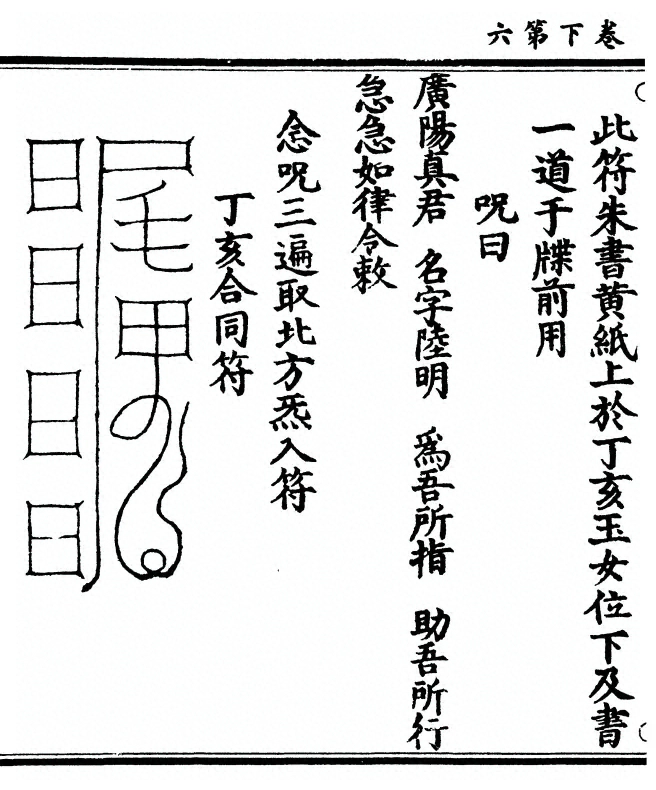 卷下第六
此符朱書黄紙上於丁亥玉女位下及書
一道于牒前用
呪曰
廣陽真君　名字陸明　爲吾所指　助吾所行
急急如律令敕
念呪三遍取北方炁入符
丁亥合同符
尸毛甲
日日日日